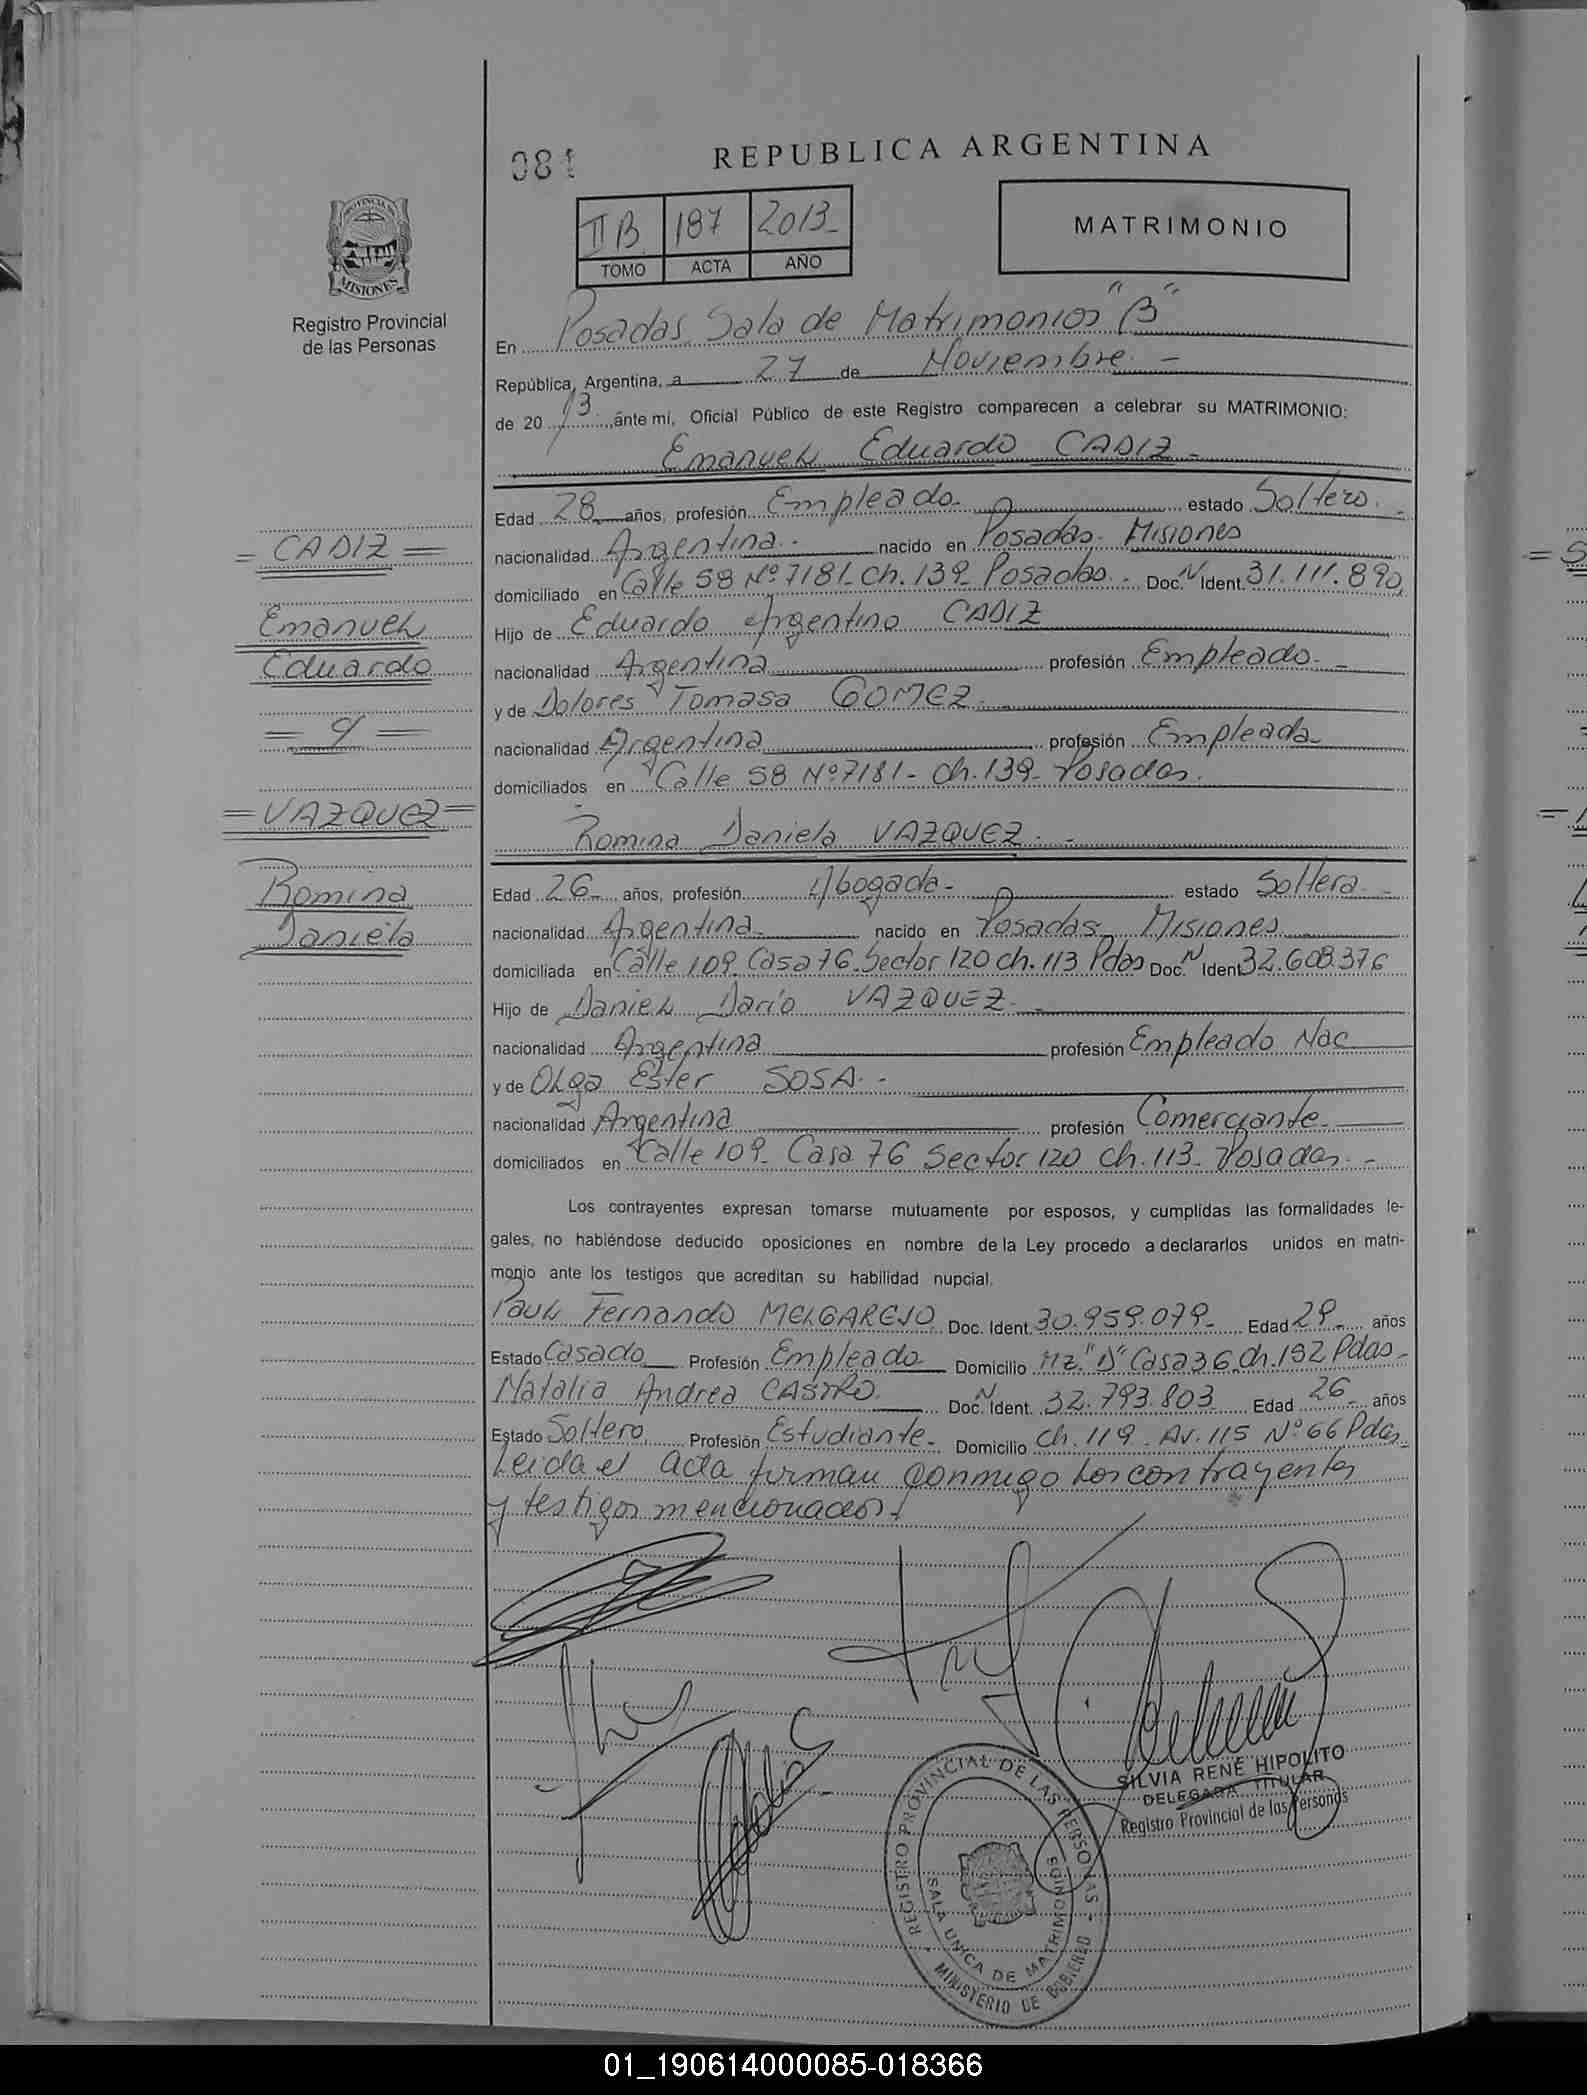 081
REPUBLICA ARGENTINA
II B 187 2013
TOMO ACTA AÑO
MATRIMONIO
PROVINCIA DE
MISIONES
Registro Provincial
de las Personas
En Posadas Sala de Matrimonios "B"
República Argentina, a 27 de Noviembre. -
de 20 13 ánte mí, Oficial Público de este Registro comparecen a celebrar su MATRIMONIO:
Emanuel Eduardo CADIZ -
Edad 28 años, profesión Empleado. estado Soltero. -
nacionalidad Argentina. - nacido en Posadas. Misiones
domiciliado en Calle 58 Nº 7181- Ch. 139- Posadas. - Doc. N Ident. 31.111.890
Hijo de Eduardo Argentino CADIZ
nacionalidad Argentina profesión Empleado. -
y de Dolores Tomasa GOMEZ. -
nacionalidad Argentina profesión Empleada-
domiciliados en Calle 58 Nº 7181- Ch. 139- Posadas.
Romina Daniela VAZQUEZ. -
Edad 26- años, profesión Abogada- estado Soltera. -
nacionalidad Argentina- nacido en Posadas- Misiones
domiciliada en Calle 109- Casa 76. Sector 120 ch. 113 Pdas Doc. N Ident 32.608.376
Hijo de Daniel Darío VAZQUEZ. -
nacionalidad Argentina profesión Empleado Nac
y de Olga Ester SOSA. -
nacionalidad Argentina profesión Comerciante-
domiciliados en Calle 109- Casa 76 Sector 120 ch. 113- Posadas. -
Los contrayentes expresan tomarse mutuamente por esposos, y cumplidas las formalidades le-
gales, no habiéndose deducido oposiciones en nombre de la Ley procedo a declararlos unidos en matri-
monio ante los testigos que acreditan su habilidad nupcial.
Paul Fernando MELGAREJO Doc. Ident. 30.959.079- Edad 29- años
Estado Casado Profesión Empleado Domicilio Mz. "D" Casa 36. Ch. 192 Pdas-
Natalia Andrea CASTRO Doc. N Ident. 32.793.803 Edad 26- años
Estado Soltero Profesión Estudiante- Domicilio Ch. 119. Av. 115 Nº 66 Pdas-
Leida el acta firman conmigo los contrayentes
y testigos mencionados.
= CADIZ =
Emanuel
Eduardo
= y =
= VAZQUEZ =
Romina
Daniela
SILVIA RENÉ HIPOLITO
DELEGADA TITULAR
Registro Provincial de las Personas
REGISTRO PROVINCIAL DE LAS PERSONAS -
SALA UNICA DE MATRIMONIOS
MINISTERIO DE GOBIERNO
01_190614000085-018366